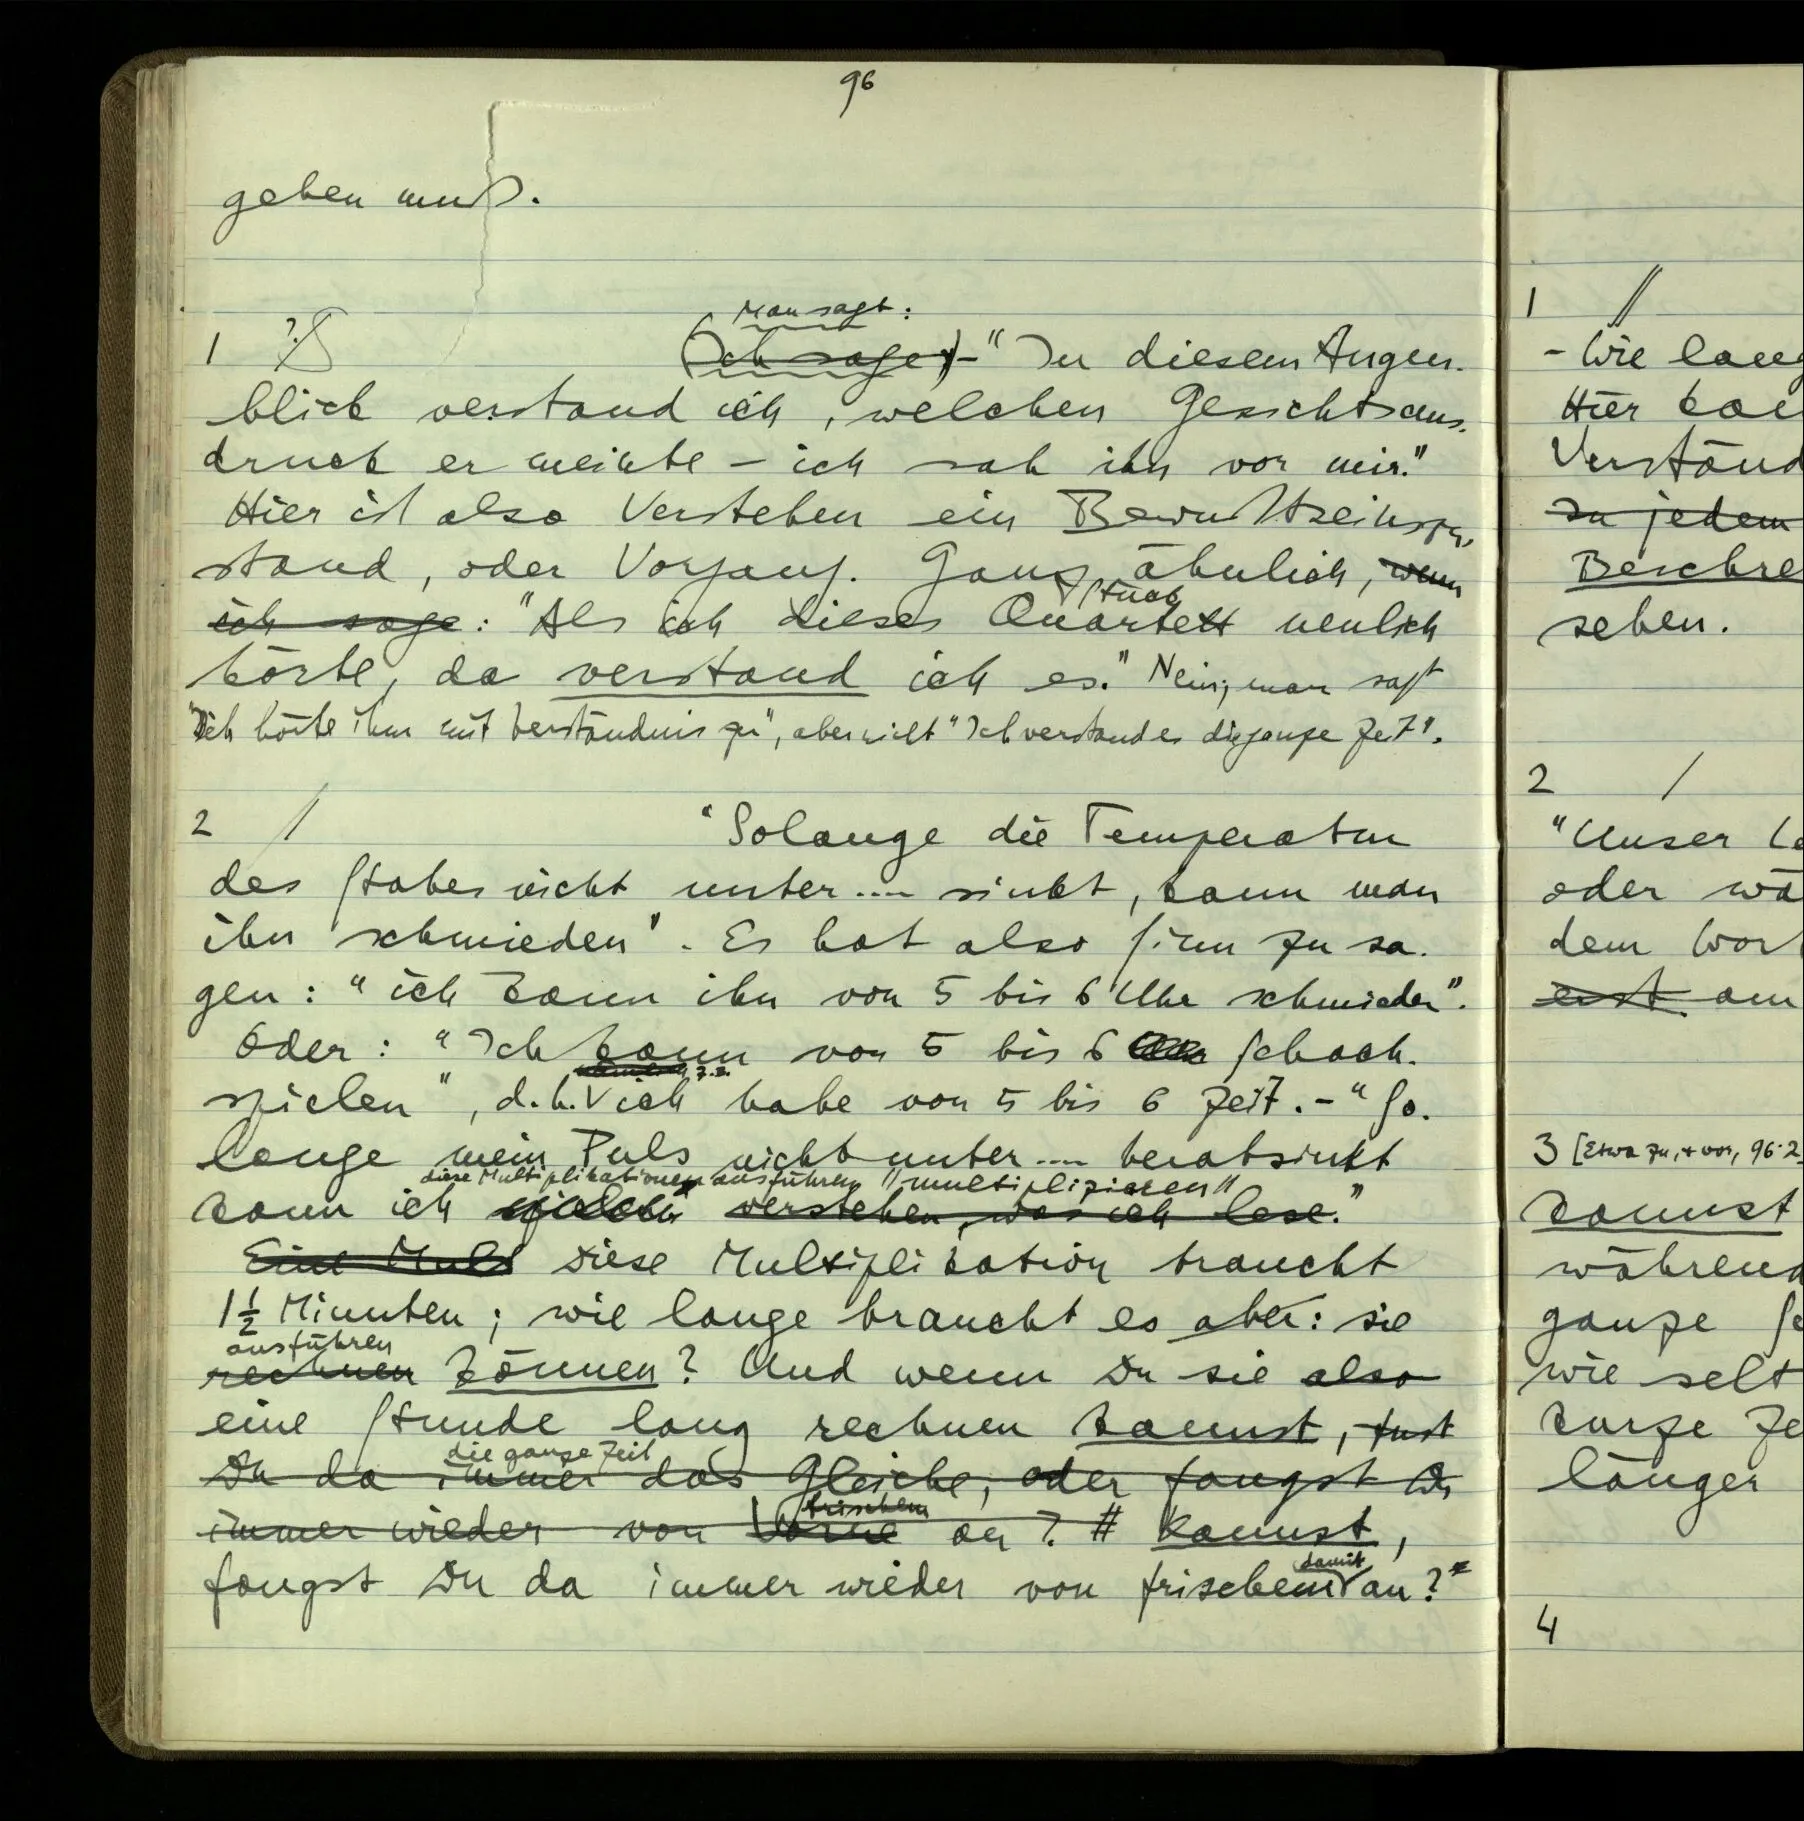 96
geben muß.
Man sagt:
1 ? S (Ich sage) – "In diesem Augen-
blick verstand ich, welchen Gesichtsaus-
druck er meinte – ich sah ihn vor mir."
Hier ist also Verstehen ein Bewußtseinszu-
stand, oder Vorgang. Ganz ähnlich, wenn
Stück
ich sage: "Als ich dieses Quartett neulich
hörte, da verstand ich es." Nein; man sagt
"Ich hörte ihm mit Verständnis zu", aber nicht "Ich verstand es die ganze Zeit".
2 / "Solange die Temperatur
des Stabes nicht unter .... sinkt, kann man
ihn schmieden". Es hat also Sinn zu sa-
gen: "ich kann ihn von 5 bis 6 Uhr schmieden".
Oder: "Ich kann von 5 bis 6 Uhr Schach-
z.B.
spielen", d.h. ich habe von 5 bis 6 Zeit. – "So-
lange mein Puls nicht unter .... herabsinkt
diese Multiplikationen ausführen "multiplizieren"
kann ich verstehen, was ich lese."
Eine Mult Diese Multiplikation braucht
1½ Minuten; wie lange braucht es aber: sie
ausführen
rechnen können? Und wenn Du sie also
eine Stunde lang rechnen kannst, tust
die ganze Zeit
Du da immer das Gleiche, oder fangst Du
frischem
immer wieder von Vorne an? # kannst,
damit
fangst Du da immer wieder von frischem an?*
1 //
– Wie lang
Hier kan
Verständ
zu jedem
Beschre
sehen.
2 /
"Unser
oder wä
dem Wort
erst am
3 [Etwa zu, + vor, 96·2
kannst
während
ganze Se
wie selt
kurze Ze
länger
4